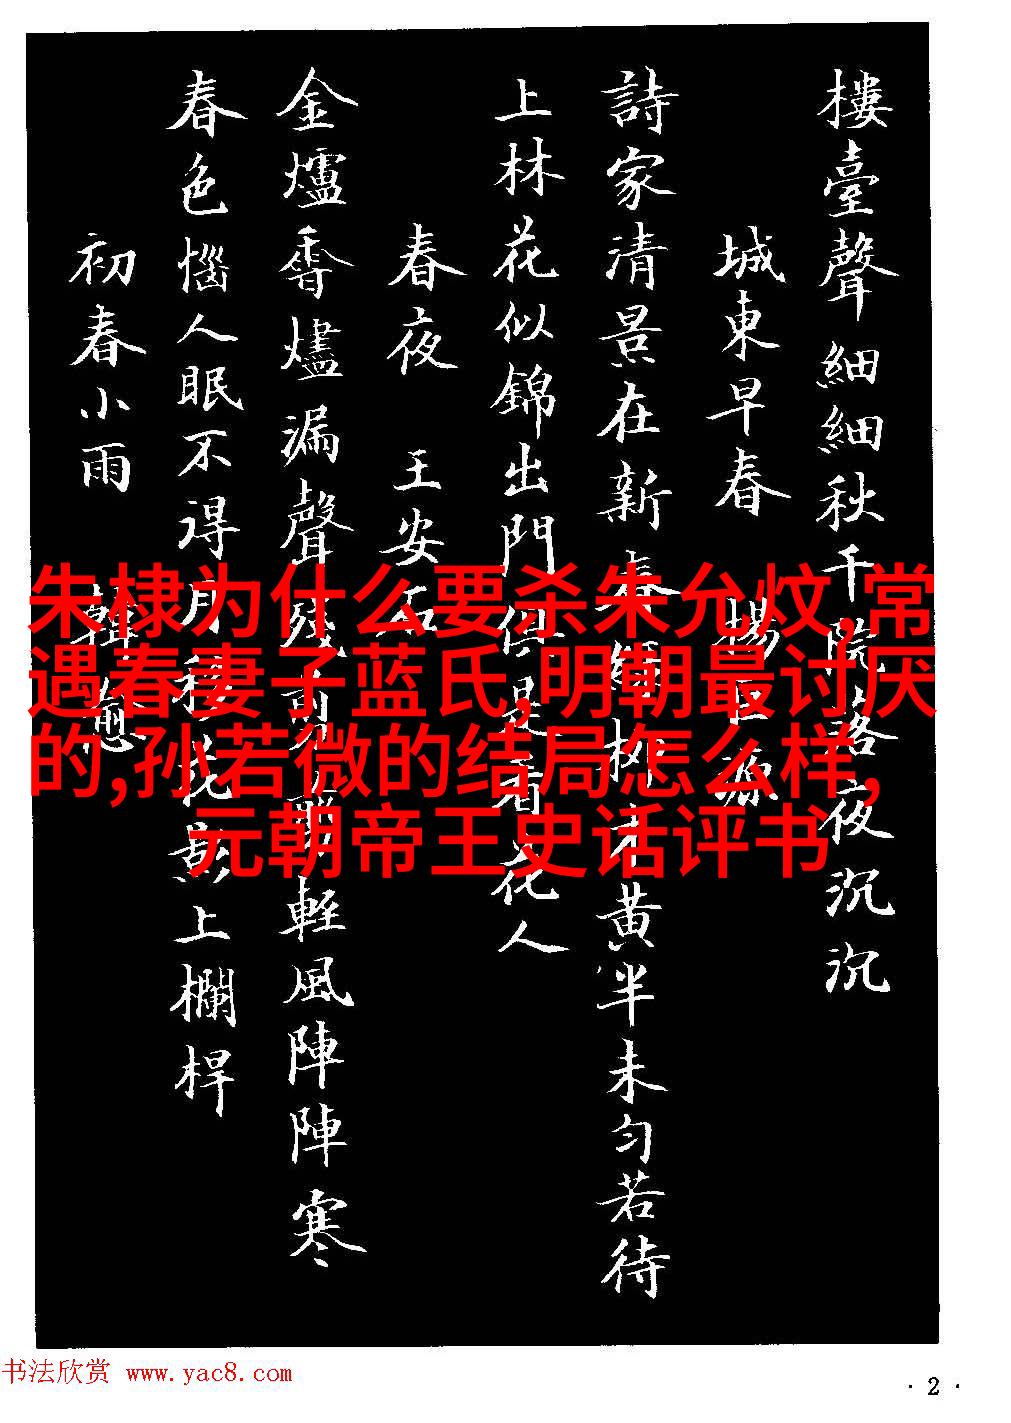 樓臺聲細細秋千院落夜沉沉
城東早春 楊巨源
詩家清景在新春綠柳才黃半未勻若待
上林花似錦出門俱是看花人
春夜 王安石
金爐香燼漏聲殘翦翦輕風陣陣寒
春色惱人眠不得月移花影上欄桿
初春小雨 韓愈
朱棣为什么要杀朱允炆,常
遇春妻子蓝氏,明朝最讨厌
的,孙若微的结局怎么样,
元朝帝王史话评书
书法欣赏 www.yac8.com
·2·